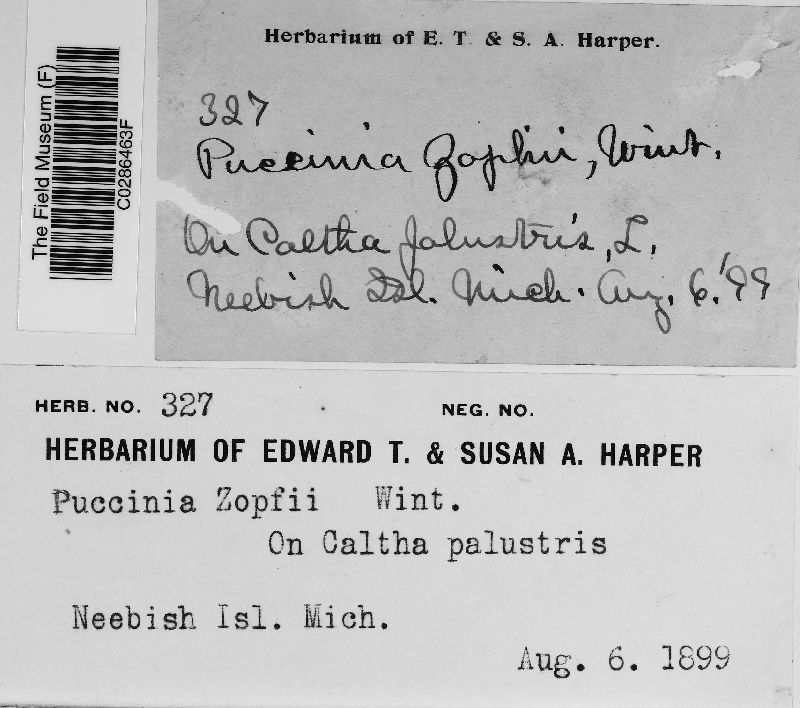 The Field Museum (F)
C0286463F
Herbarium of E. T. & S. A. Harper.
327
Puccinia Zopfii, Wint.
On Caltha palustris, L.
Neebish Isl. Mich. Aug. 6. '99
HERB. NO. 327 NEG. NO.
HERBARIUM OF EDWARD T. & SUSAN A. HARPER
Puccinia Zopfii Wint.
On Caltha palustris
Neebish Isl. Mich.
Aug. 6. 1899